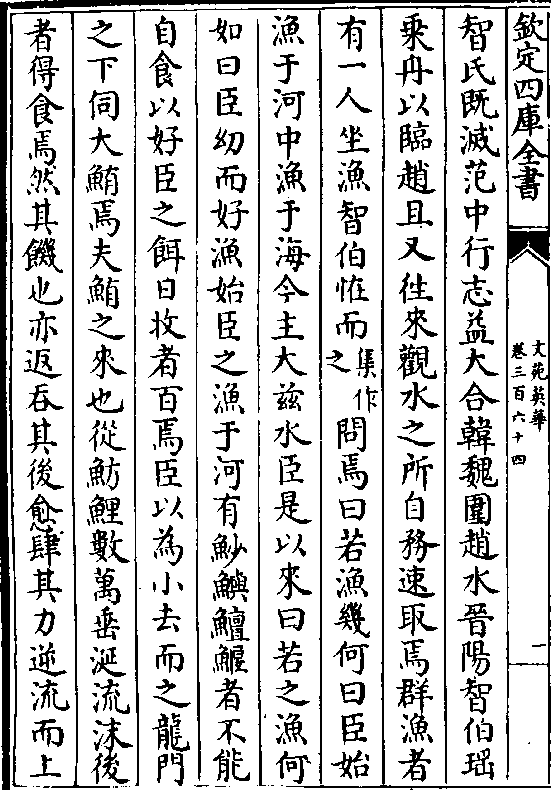 欽定四庫全書
文苑英華
卷三百六十四
一
智氏既滅范中行志益大合韓魏圍趙水晉陽智伯瑶
乘舟以臨趙且又徃來觀水之所自務速取焉群漁者
有一人坐漁智伯恠而集作之問焉曰若漁幾何曰臣始
漁于河中漁于海今主大兹水臣是以來曰若之漁何
如曰臣幼而好漁始臣之漁于河有魦鱮鱣鰋者不能
自食以好臣之餌日收者百焉臣以為小去而之龍門
之下伺大鮪焉夫鮪之來也從魴鯉數萬垂涎流沫後
者得食焉然其饑也亦返吞其後愈肆其力逆流而上